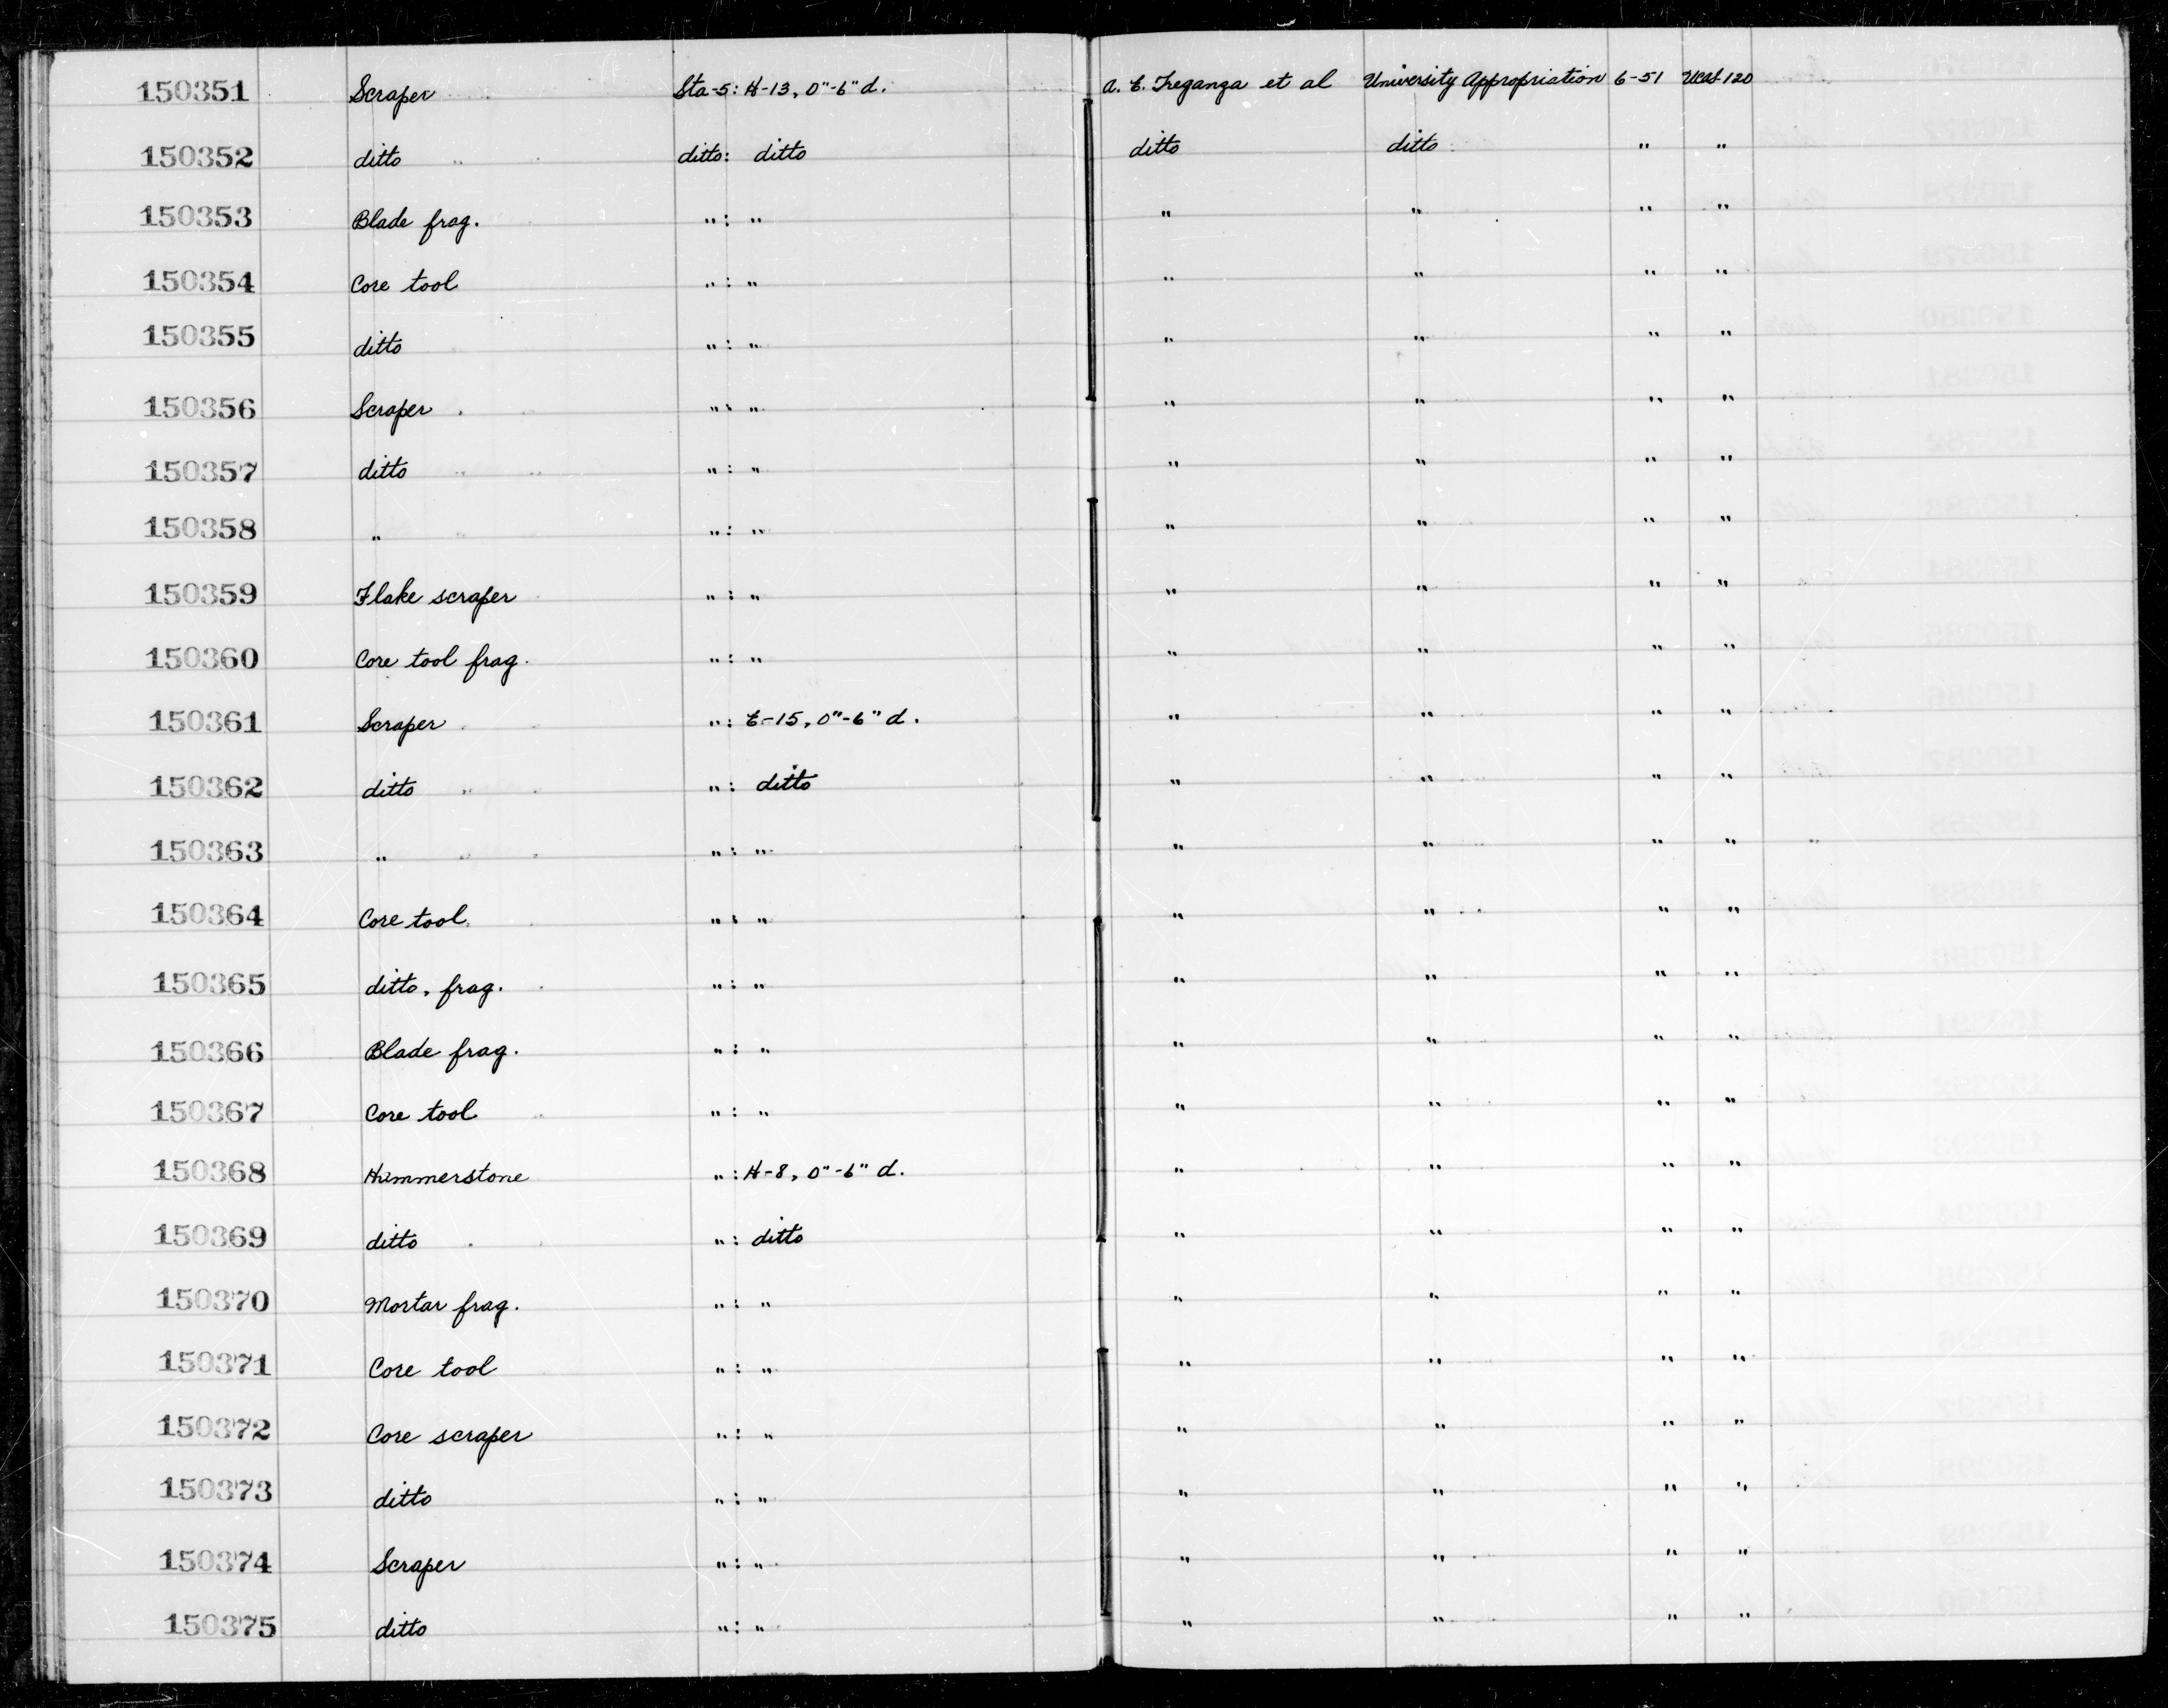 150351 Scraper Sta-5: H-13, 0"-6" d. A. E. Treganza et al University Appropriation 6-51 UCAS 120
150352 ditto ditto: ditto ditto ditto " "
150353 Blade frag. " : " " " " "
150354 Core tool " : " " " " "
150355 ditto " : " " " " "
150356 Scraper " : " " " " "
150357 ditto " : " " " " "
150358 " " : " " " " "
150359 Flake scraper " : " " " " "
150360 Core tool frag. " : " " " " "
150361 Scraper " : E-15, 0"-6" d. " " " "
150362 ditto " : ditto " " " "
150363 " " : " " " " "
150364 Core tool " : " " " " "
150365 ditto, frag. " : " " " " "
150366 Blade frag. " : " " " " "
150367 Core tool " : " " " " "
150368 Hammerstone " : H-8, 0"-6" d. " " " "
150369 ditto " : ditto " " " "
150370 Mortar frag. " : " " " " "
150371 Core tool " : " " " " "
150372 Core scraper " : " " " " "
150373 ditto " : " " " " "
150374 Scraper " : " " " " "
150375 ditto " : " " " " "